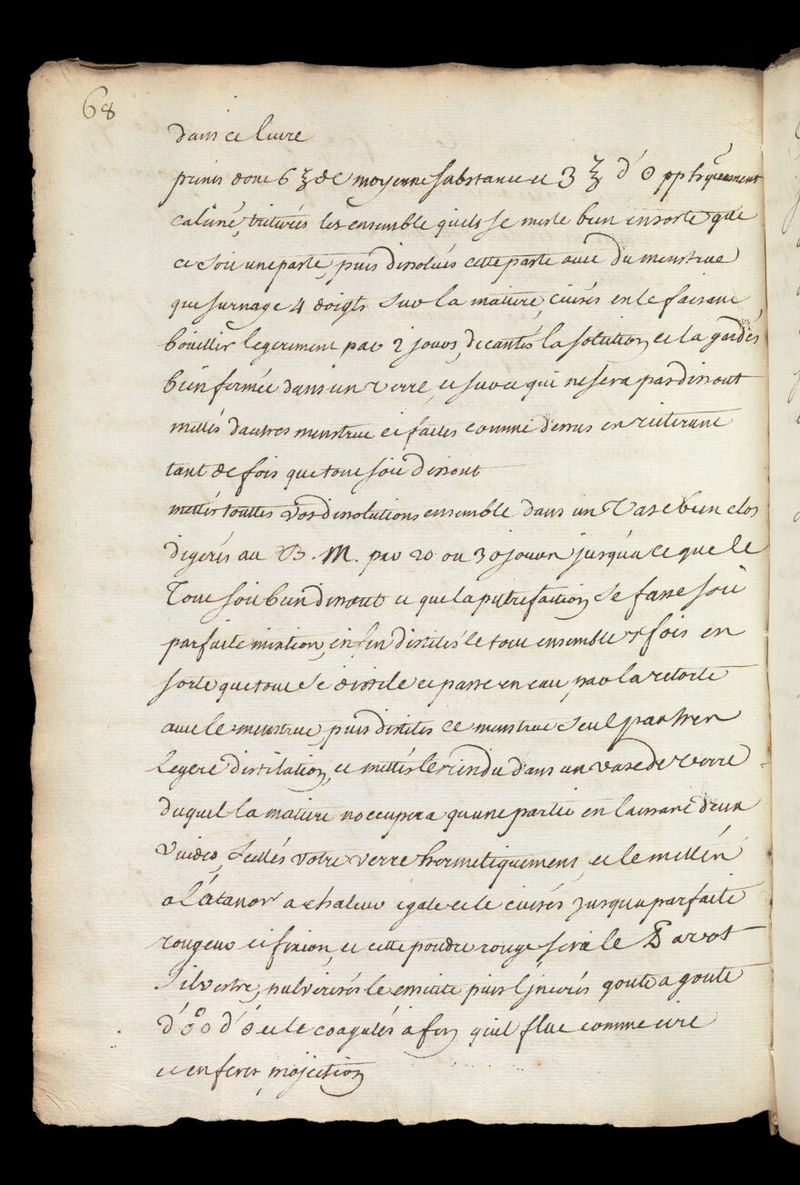 68
dans ce livre
prenés donc 6 ℥ de moyenne substance et 3 ℥ d'☉ pphiquement
calciné, triturés les ensemble quils se mesle bien ensorte que
ce soit une paste, puis dissolvés cette paste avec du menstrue
que surnage 4 doigts sur la matiere, cuisés en le faisant
bouillir legerement par 2 jours, decantés la solution, et la gardés
bien fermée dans un verre, et sur ce qui ne sera pas dissout
mettés d'autres menstrue et faites comme dessus en reiterant
tant de fois que tout soit dissout
mettés touttes vos dissolutions ensemble dans un vase bien clos
digerés au B. M. par 20 ou 30 jours jusqu'a ce que le
Tout soit bien dissout et que la putrefaction se fasse soit
parfaite mixtion, enfin distilés le tout ensemble fois en
sorte que tout se distile et passe en eau par la retorte
avec le menstrue, puis distilés ce menstrue seul par
legere distilation, et mettés le residu dans un vase de verre
duquel la matiere n'occupera qu'une partie en laissant deux
vuides, scellés votre verre hermetiquement, et le mettés
a l'atanor a chaleur egale et le cuisés jusqu'a parfaite
rougeur et fixion, et cette poudre rouge sera le Pavot
silvestre, pulverisés le ensuite puis l'incerés goute a goute
et le coagulés afin qu'il flue comme cire
et en ferés projection